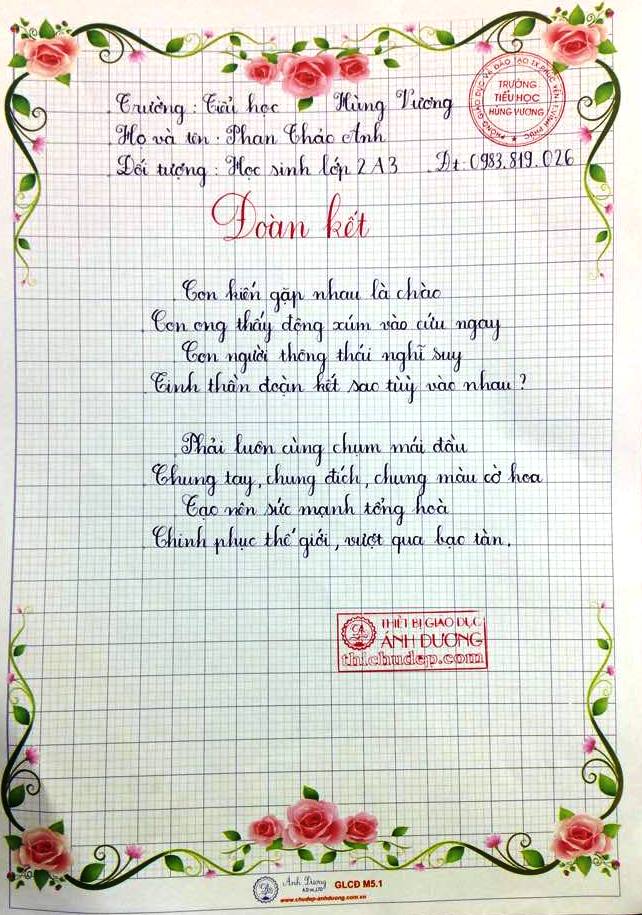 Trường : Tiểu học Hùng Vương
Họ và tên : Phan Thảo Anh
Đối tượng : Học sinh lớp 2A3 Đt. 0983.819.026
PHÒNG GIÁO DỤC VÀ ĐÀO TẠO TX.PHÚC YÊN-T.VĨNH PHÚC
TRƯỜNG
TIỂU HỌC
HÙNG VƯƠNG
Đoàn kết
Con kiến gặp nhau là chào
Con ong thấy động xúm vào cứu ngay
Con người thông thái nghĩ suy
Tinh thần đoàn kết sao tùy vào nhau ?
Phải luôn cùng chụm mái đầu
Chung tay, chung đích, chung màu cờ hoa
Tạo nên sức mạnh tổng hoà
Chinh phục thế giới, vượt qua bạo tàn.
THIẾT BỊ GIÁO DỤC
ÁNH DƯƠNG
thichudep.com
Ánh Dương GLCD M5.1
www.chudep-anhduong.com.vn